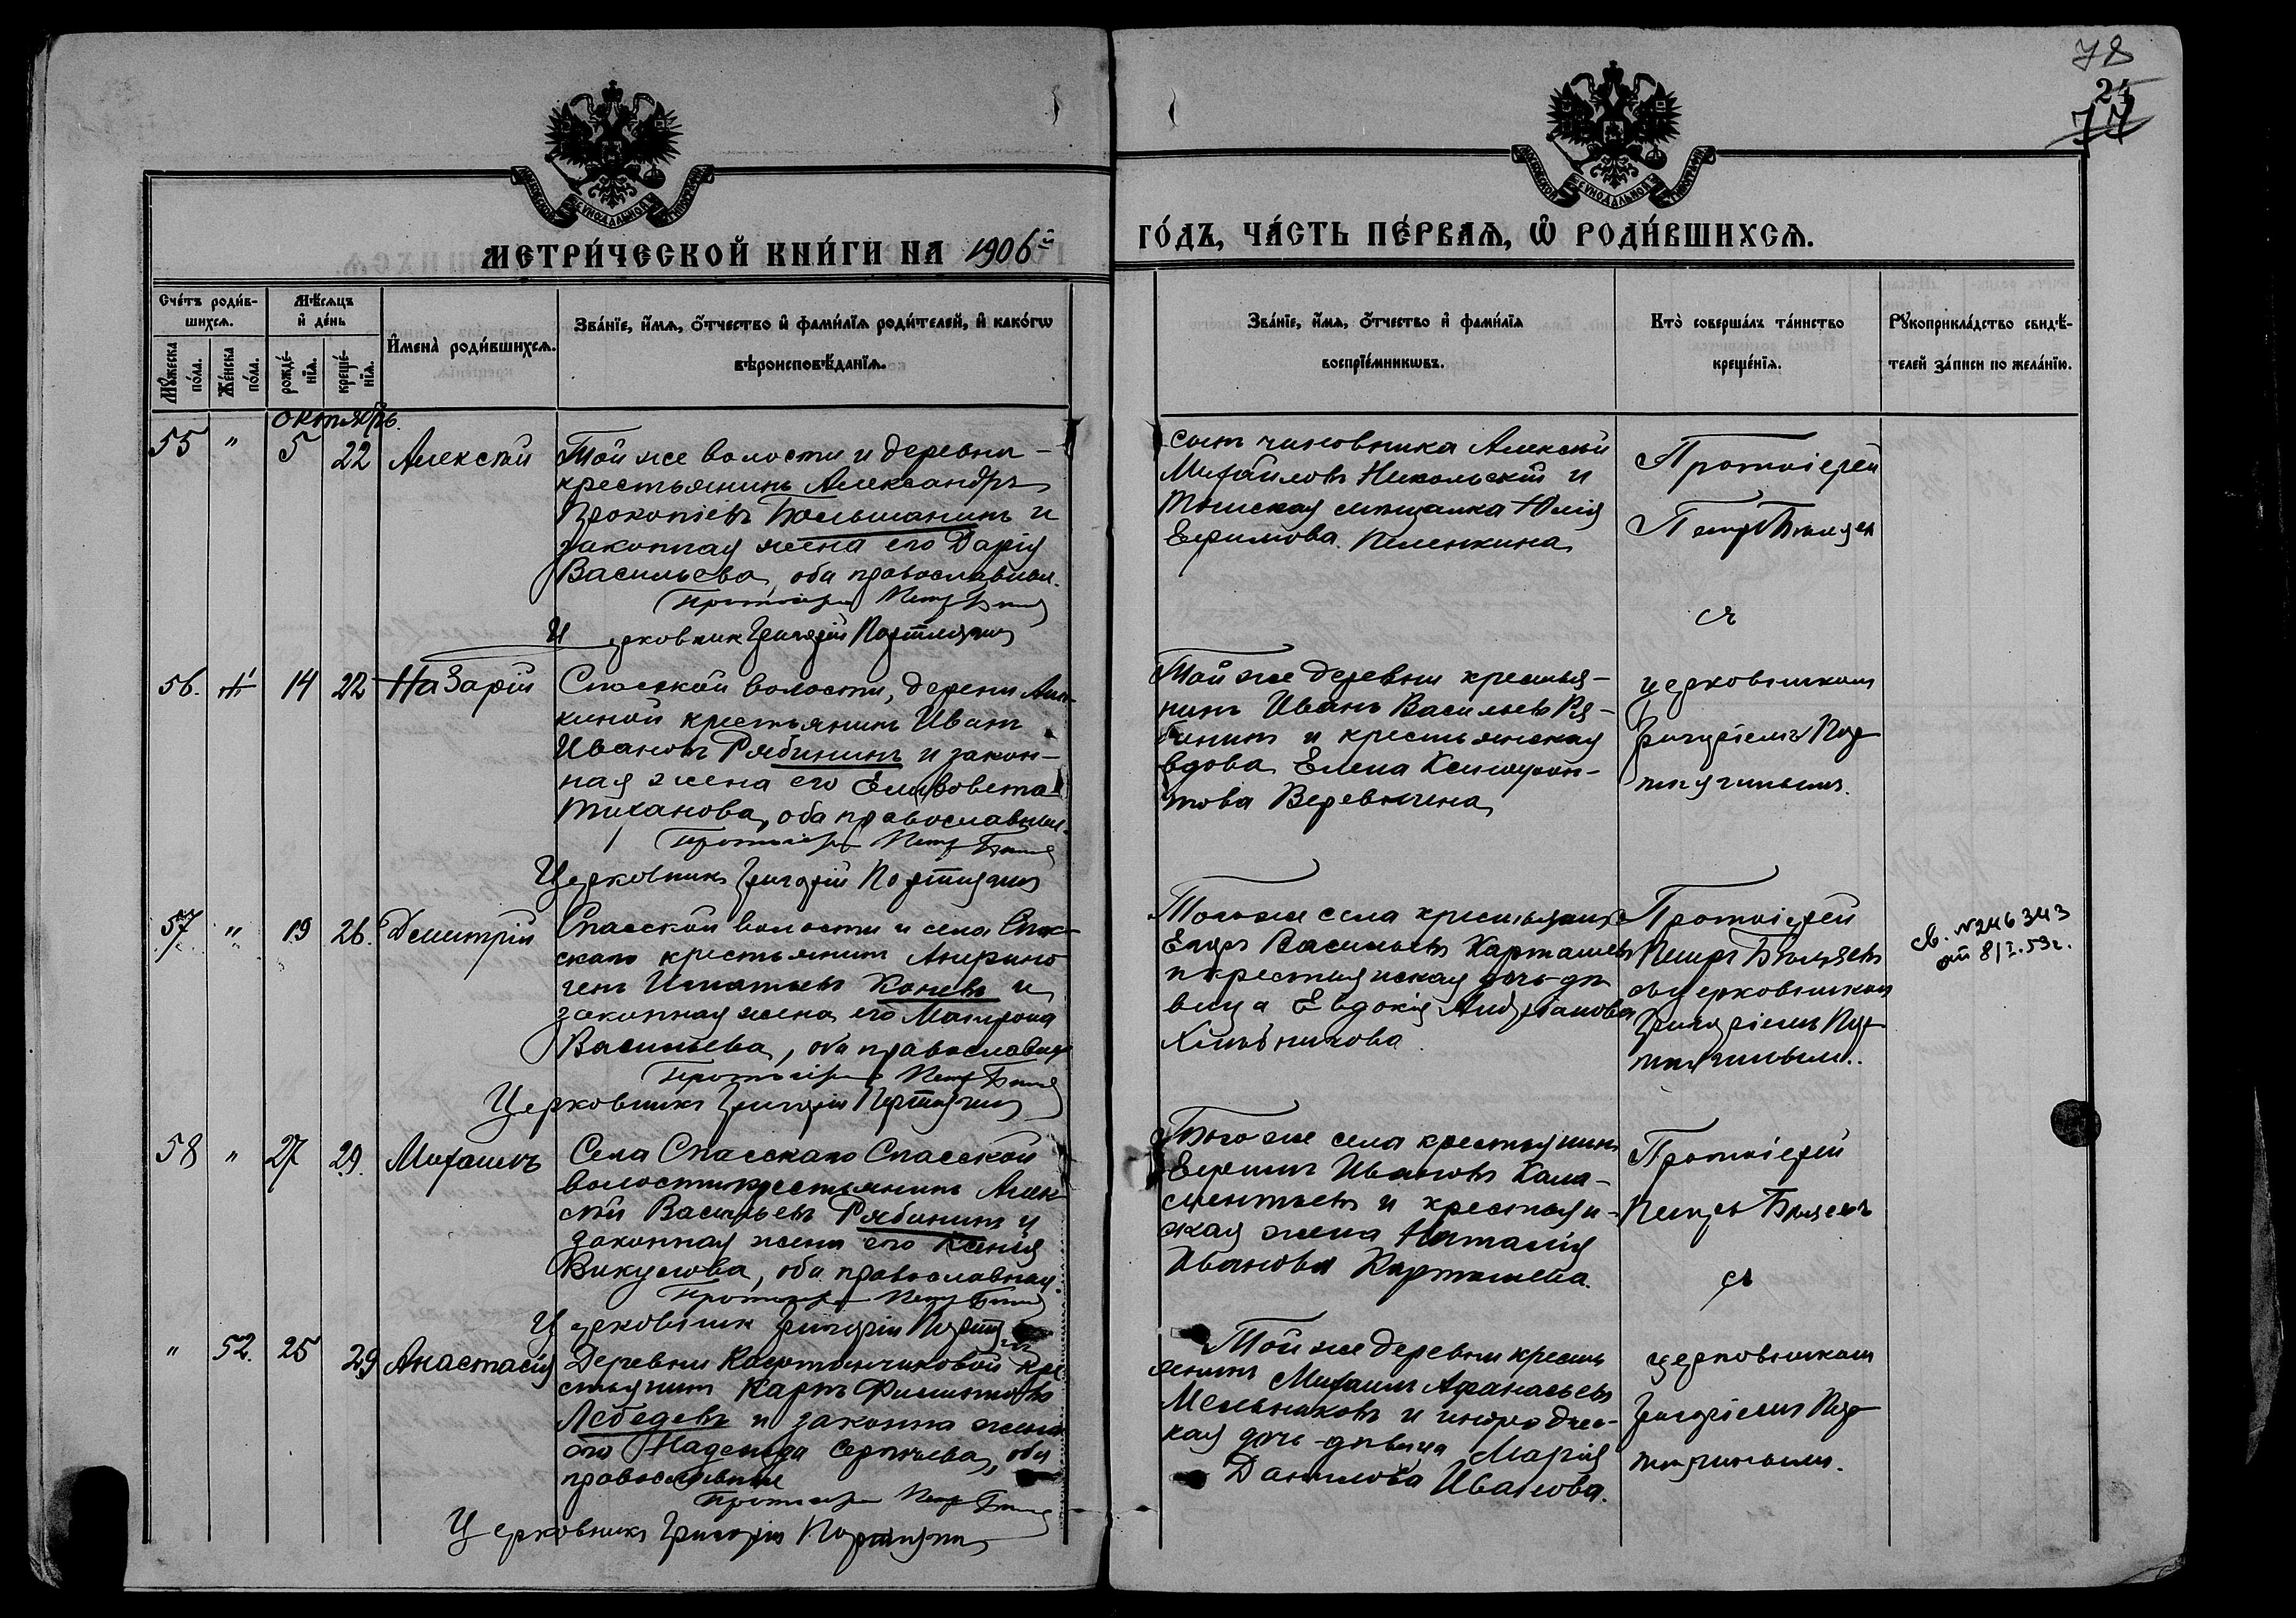 78
24
77
МЕТРИ́ЧЕСКОЙ КНИ́ГИ НА 1906й
ГО́ДЪ, ЧА́СТЬ ПЕ́РВАѦ, Ѡ҆ РОДИ́ВШИХСѦ.
Сче́тъ роди́в-
шихсѧ.
Мѣ́сѧцъ
и҆ де́нь
Мꙋ́жеска по́ла.
Же́нска по́ла.
рожде́-
нїѧ.
креще́-
нїѧ.
И҆мена̀ роди́вшихсѧ.
Зва́нїе, и҆́мѧ, о҆́тчество и҆ фами́лїѧ роди́телей, и҆ како́гѡ
вѣроисповѣ́данїѧ.
Зва́нїе, и҆́мѧ, о҆́тчество и҆ фами́лїѧ
воспрїе́мникѡвъ.
Кто̀ соверша́лъ та́инство
креще́нїѧ.
Рꙋкоприкла́дство свидѣ́-
телей за́писи по жела́нїю.
октябрь.
55 " 5 22 Алексѣй
Той же волости и деревни
крестьянинъ Александръ
Прокопіевъ Большанинъ и
законная жена его Дарія
Васильева, оба православные.
Протоіерей Петр
Церковник Григорій
сынъ чиновника Алексѣй
Михаиловъ Никольскій и
Томская мѣщанка Юлія
Ефимова Пеленкина
Протоіерей
Петръ Бѣляев
съ
56. 14 22 Назарій
Спасской волости, деревни
киной крестьянинъ Иванъ
Ивановъ Рябининъ и закон-
ная жена его Елизовета
Тиханова, оба православные.
Протоіерей Петр
Церковникъ Григорій
Той же деревни крестья-
нинъ Иванъ Васильевъ Ря-
бининъ и крестьянская
вдова Елена Ксенофон-
това Веревкина
церковникомъ
Григоріемъ
57 " 19 26. Димитрій
Спасской волости и села Спас-
скаго крестьянинъ Андрино
генъ Игнатьевъ Коневъ и
законная жена его Матрона
Васильева, оба православные
Протоіерей Петр
Церковникъ Григорій
Того же села крестьянинъ
Егоръ Васильевъ Карташевъ
и крестьянская дочь-дѣ
вица Евдокія Андріанова
Протоіерей
Петръ Бѣляевъ
съ церковникомъ
Григоріемъ
св. №246343
от 8/I.53г.
58 " 27 29. Михаилъ
Села Спасскаго Спасской
волости крестьянинъ Алек-
сѣй Васильевъ Рябининъ и
законная жена его Ксенія
Викулова, оба православные.
Протоіерей Петр
Церковник Григорій
Того же села крестьянинъ
Ефимъ Ивановъ Кала-
ментьевъ и крестьян-
ская жена Наталія
Иванова Карташева.
Протоіерей
Петръ Бѣляевъ
съ
" 52. 25 29 Анастасія
Деревни кре
стьянинъ Карпъ Филиповъ
Лебедевъ и законна жена
его Надежда Сергѣева, оба
православные
Протоіерей Петр
Церковникъ Григорій
Той же деревни кресть
янинъ Михаилъ Афанасьевъ
Мельниковъ и инородчес-
кая дочь-дѣвица Марія
Данилова Иванова.
церковникомъ
Григоріемъ